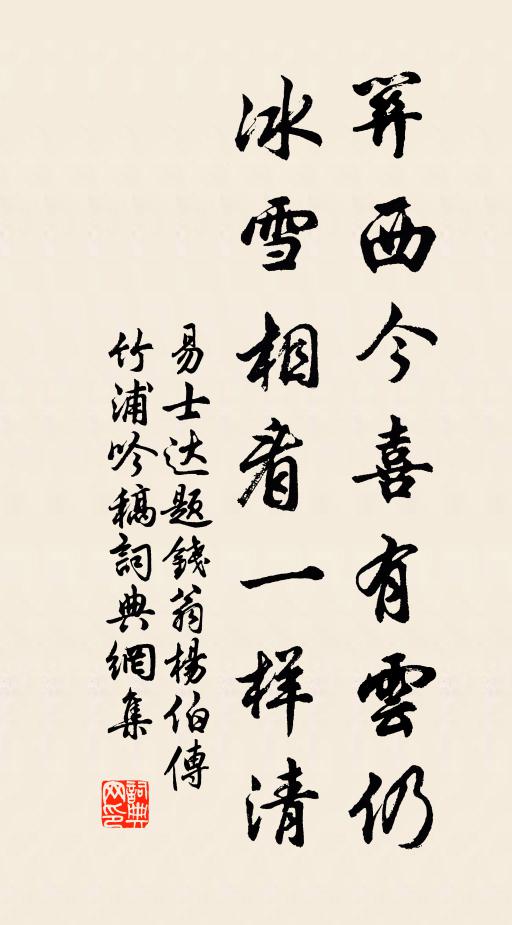 笄西今喜有雲仍
冰雪相看一样清
易士达题錢翁楊伯傳
竹浦吟稿詞典網集
詞典网印